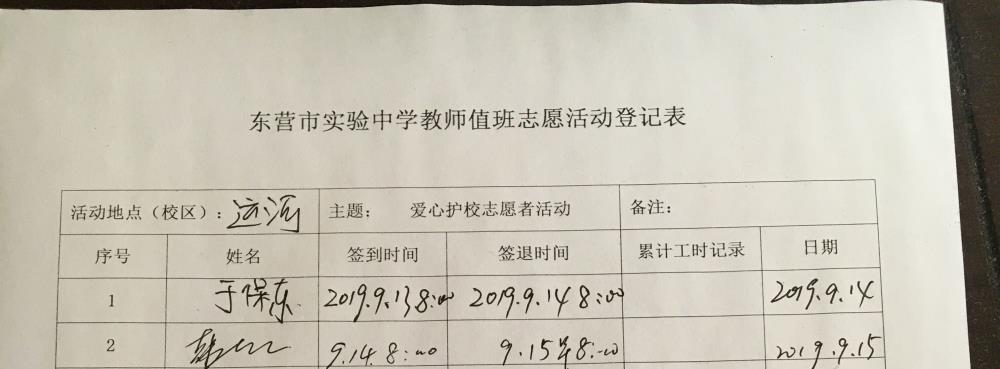 东营市实验中学教师值班志愿活动登记表
活动地点（校区）：运河 主题： 爱心护校志愿者活动 备注：
序号 姓名 签到时间 签退时间 累计工时记录 日期
1 于保东 2019.9.13 8:00 2019.9.14 8:00 2019.9.14
2 9.14 8:00 9.15 8:00 2019.9.15